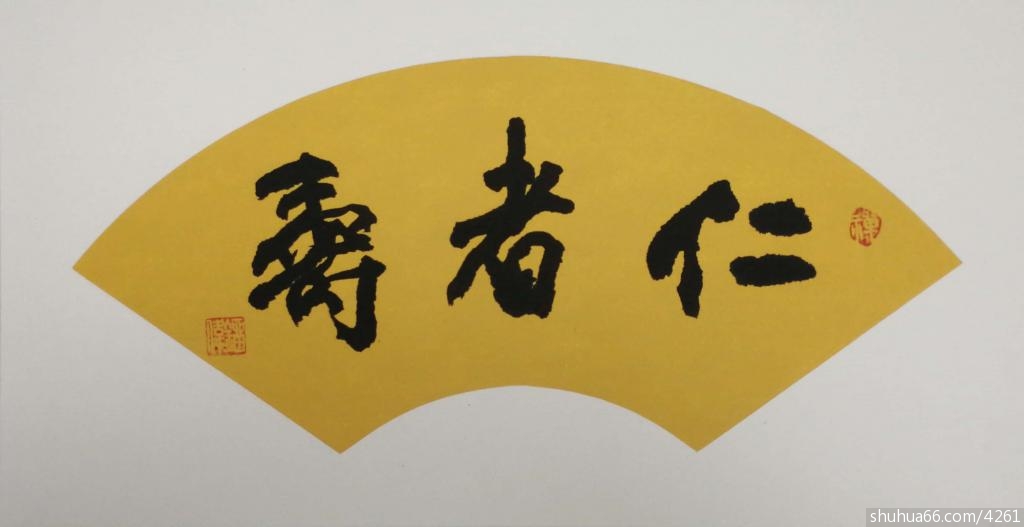 仁者壽
禪
shuhua66.com/4261